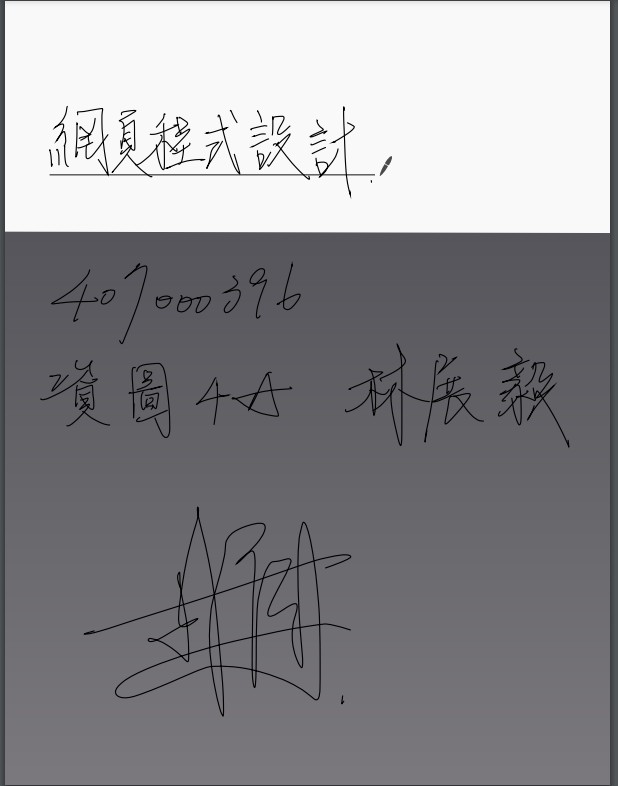 網頁程式設計.
407000396
資圖4A 林展毅